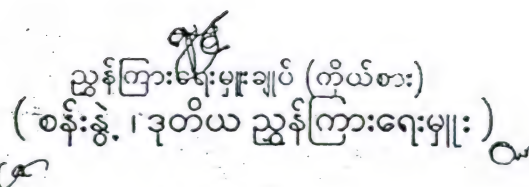 ညွှန်ကြားရေးမှူးချုပ် (ကိုယ်စား)
( စန်းနွဲ့ ၊ ဒုတိယ ညွှန်ကြားရေးမှူး )